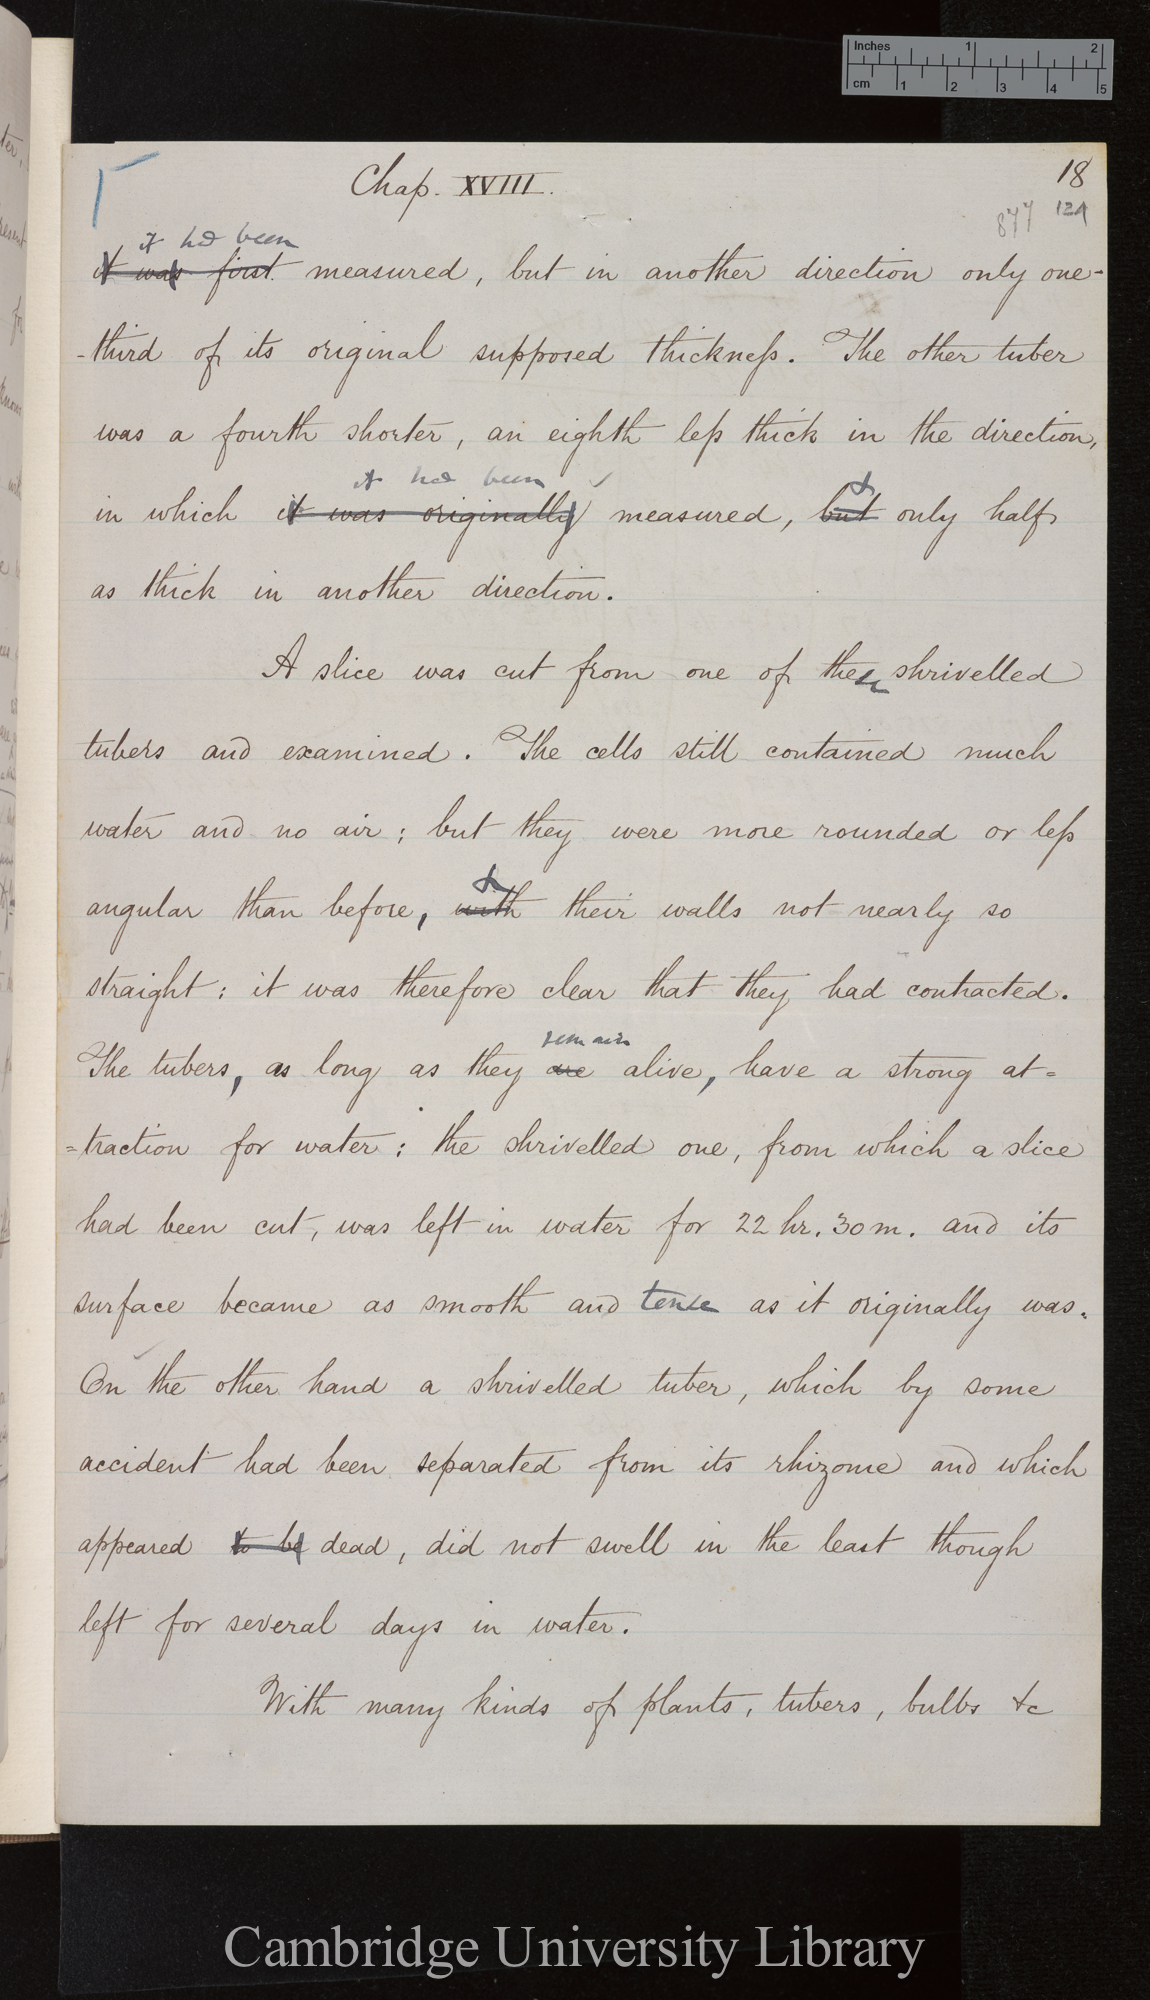 Inches 1 2
cm 1 2 3 4 5
Chap. XVIII. 18
877 124
it had been
it was first measured, but in another direction only one-
-third of its original supposed thickneſs. The other tuber
was a fourth shorter, an eighth leſs thick in the direction,
it had been
in which it was originally measured, but & only half
as thick in another direction.
A slice was cut from one of these shrivelled
tubers and examined. The cells still contained much
water and no air; but they were more rounded or leſs
&
angular than before, with their walls not nearly so
straight: it was therefore clear that they had contracted.
remain
The tubers, as long as they are alive, have a strong at=
=traction for water: the shrivelled one, from which a slice
had been cut, was left in water for 22 hr. 30 m. and its
surface became as smooth and tense as it originally was.
On the other hand a shrivelled tuber, which by some
accident had been separated from its rhizome and which
appeared to be dead, did not swell in the least though
left for several days in water.
With many kinds of plants, tubers, bulbs &c
Cambridge University Library